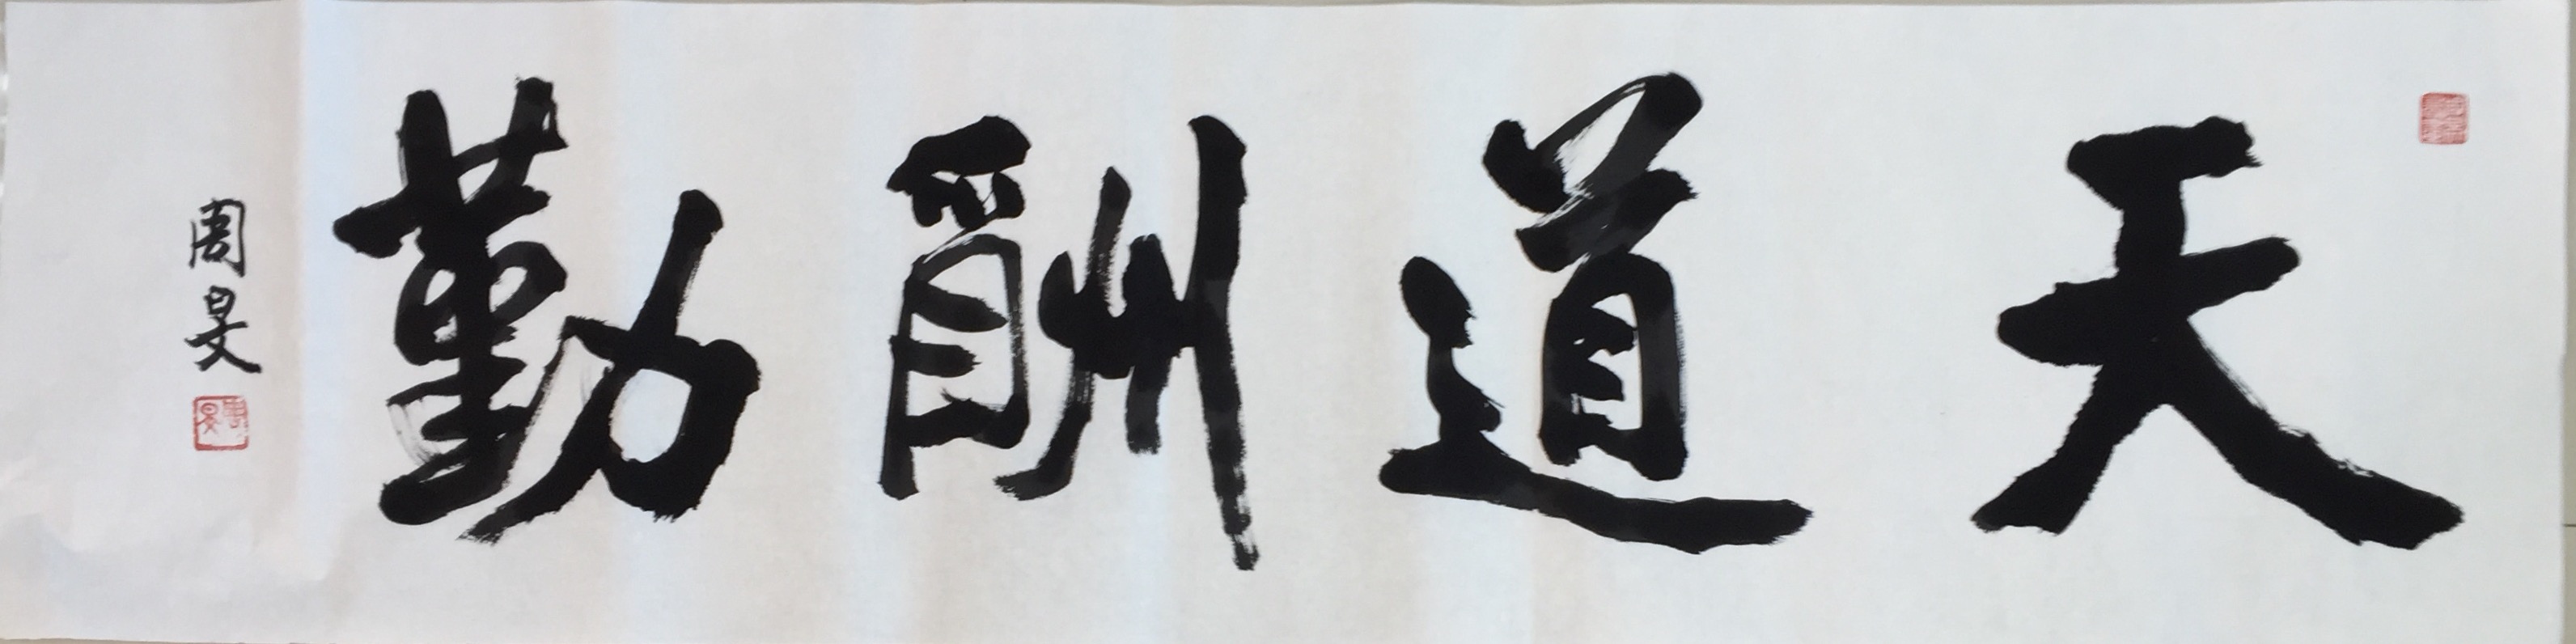 天道酬勤
周旻